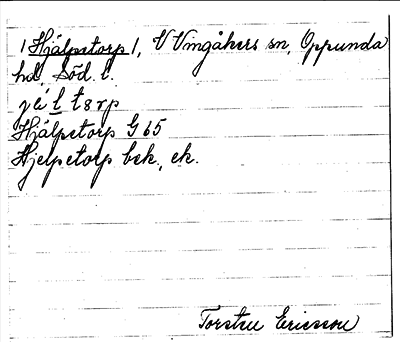 /Hjälpetorp/, V Vingåkers sn, Oppunda
hd, Söd. l.
Hjälpetorp G 65
Hjelpetorp bek., ek.
Torsten Ericsson